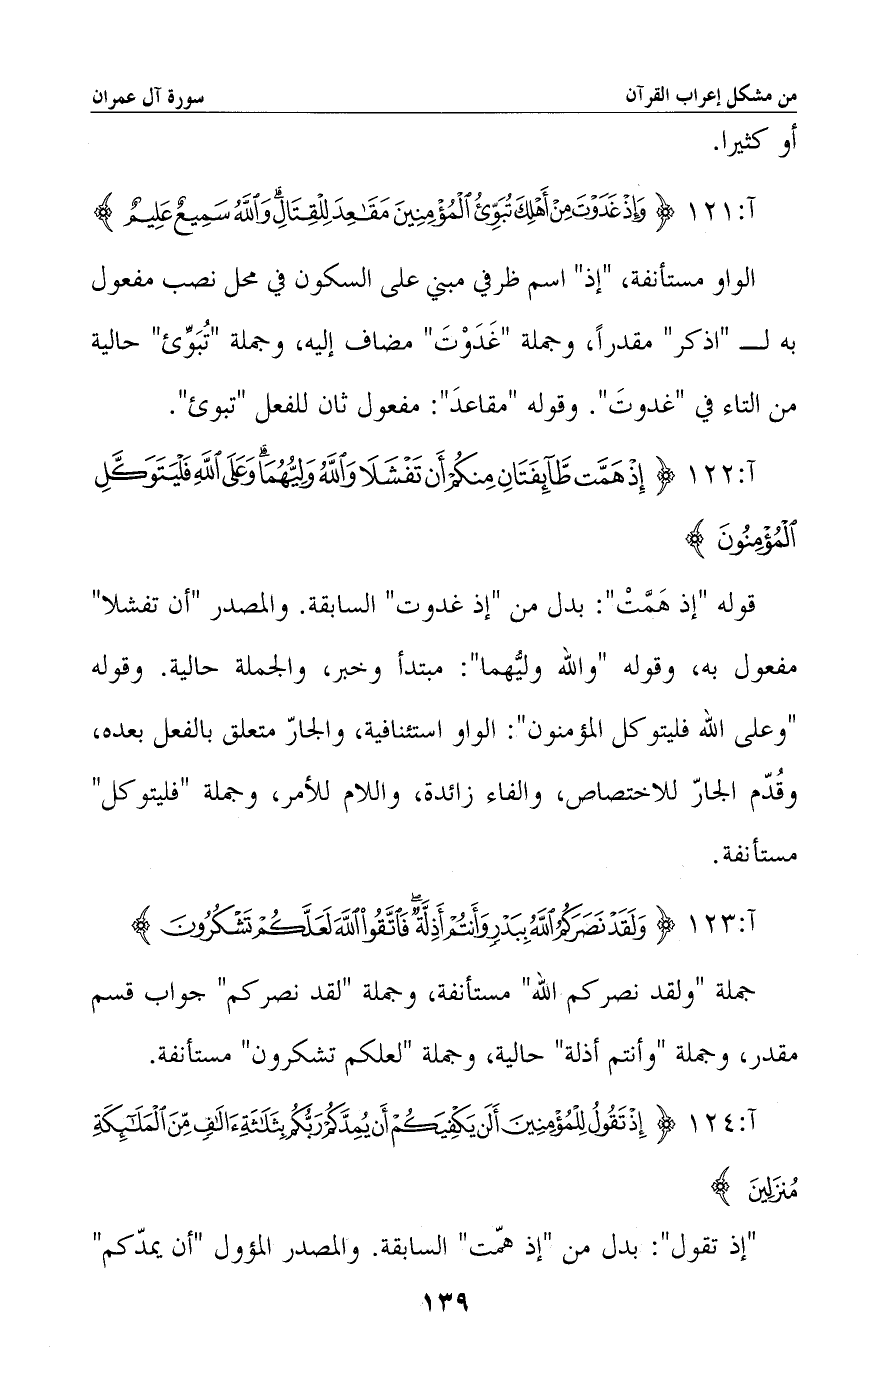 من مشكل إعراب القرآن سورة آل عمران
أو كثيرا.
آ:١٢١ ﴿ وَإِذْ غَدَوْتَ مِنْ أَهْلِكَ تُبَوِّئُ الْمُؤْمِنِينَ مَقَاعِدَ لِلْقِتَالِ ۗ وَاللَّهُ سَمِيعٌ عَلِيمٌ ﴾
الواو مستأنفة، "إذ" اسم ظرفي مبني على السكون في محل نصب مفعول
به لـــ "اذكر" مقدراً، وجملة "غَدَوْتَ" مضاف إليه، وجملة "تُبَوِّئ" حالية
من التاء في "غدوتَ". وقوله "مقاعدَ": مفعول ثان للفعل "تبوئ".
آ:١٢٢ ﴿ إِذْ هَمَّت طَّآئِفَتَانِ مِنكُمْ أَن تَفْشَلَا وَاللَّهُ وَلِيُّهُمَا ۗ وَعَلَى اللَّهِ فَلْيَتَوَكَّلِ
الْمُؤْمِنُونَ ﴾
قوله "إذ هَمَّتْ": بدل من "إذ غدوت" السابقة. والمصدر "أن تفشلا"
مفعول به، وقوله "والله وليُّهما": مبتدأ وخبر، والجملة حالية. وقوله
"وعلى الله فليتوكل المؤمنون": الواو استئنافية، والجارّ متعلق بالفعل بعده،
وقُدّم الجارّ للاختصاص، والفاء زائدة، واللام للأمر، وجملة "فليتوكل"
مستأنفة.
آ:١٢٣ ﴿ وَلَقَدْ نَصَرَكُمُ اللَّهُ بِبَدْرٍ وَأَنتُمْ أَذِلَّةٌ ۖ فَاتَّقُوا اللَّهَ لَعَلَّكُمْ تَشْكُرُونَ ﴾
جملة "ولقد نصركم الله" مستأنفة، وجملة "لقد نصركم" جواب قسم
مقدر، وجملة "وأنتم أذلة" حالية، وجملة "لعلكم تشكرون" مستأنفة.
آ:١٢٤ ﴿ إِذْ تَقُولُ لِلْمُؤْمِنِينَ أَلَن يَكْفِيَكُمْ أَن يُمِدَّكُمْ رَبُّكُم بِثَلَٰثَةِ ءَالَٰفٍ مِّنَ الْمَلَٰٓئِكَةِ
مُنزَلِينَ ﴾
"إذ تقول": بدل من "إذ همّت" السابقة. والمصدر المؤول "أن يمدّكم"
١٣٩